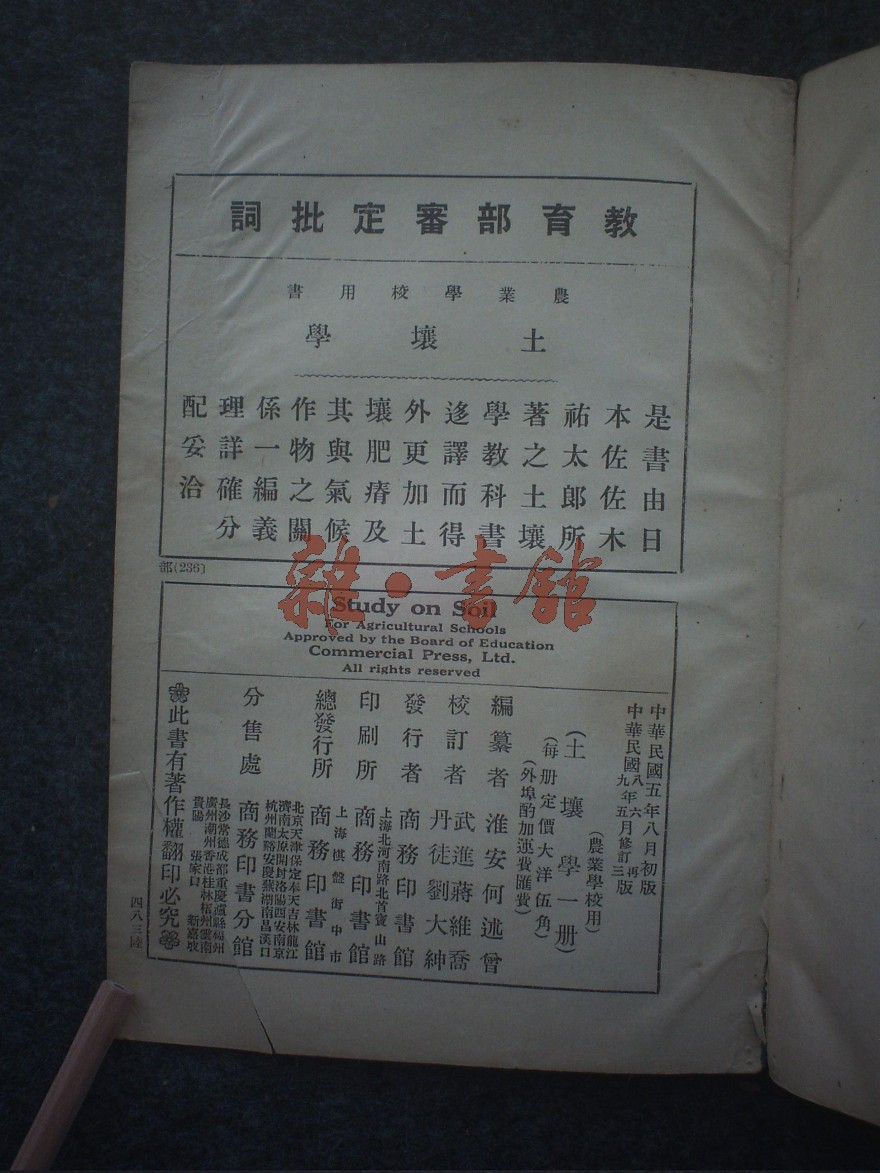 教育部審定批詞
農業學校用書
土壤學
是書由日
本佐佐木
祐太郎所
著之土壤
學教科書
迻譯而得
外更加土
壤肥瘠及
其與氣候
作物之關
係一編義
理詳確分
配妥洽
部(236)
雜·書館
Study on Soil
For Agricultural Schools
Approved by the Board of Education
Commercial Press, Ltd.
All rights reserved
中華民國五年八月初版
中華民國八年六月再版
九年五月修訂三版
(農業學校用)
(土壤學一册)
(每册定價大洋伍角)
(外埠酌加運費匯費)
編纂者 淮安何述曾
校訂者 武進蔣維喬
丹徒劉大紳
發行者 商務印書館
印刷所 上海北河南路北首寶山路
商務印書館
總發行所 上海棋盤街中市
商務印書館
分售處 北京天津保定奉天吉林龍江
濟南太原開封洛陽西安南京
杭州蘭谿安慶蕪湖南昌漢口
商務印書分館
長沙常德成都重慶瀘縣福州
廣州潮州香港桂林梧州雲南
貴陽 張家口 新嘉坡
此書有著作權翻印必究
四八三陸